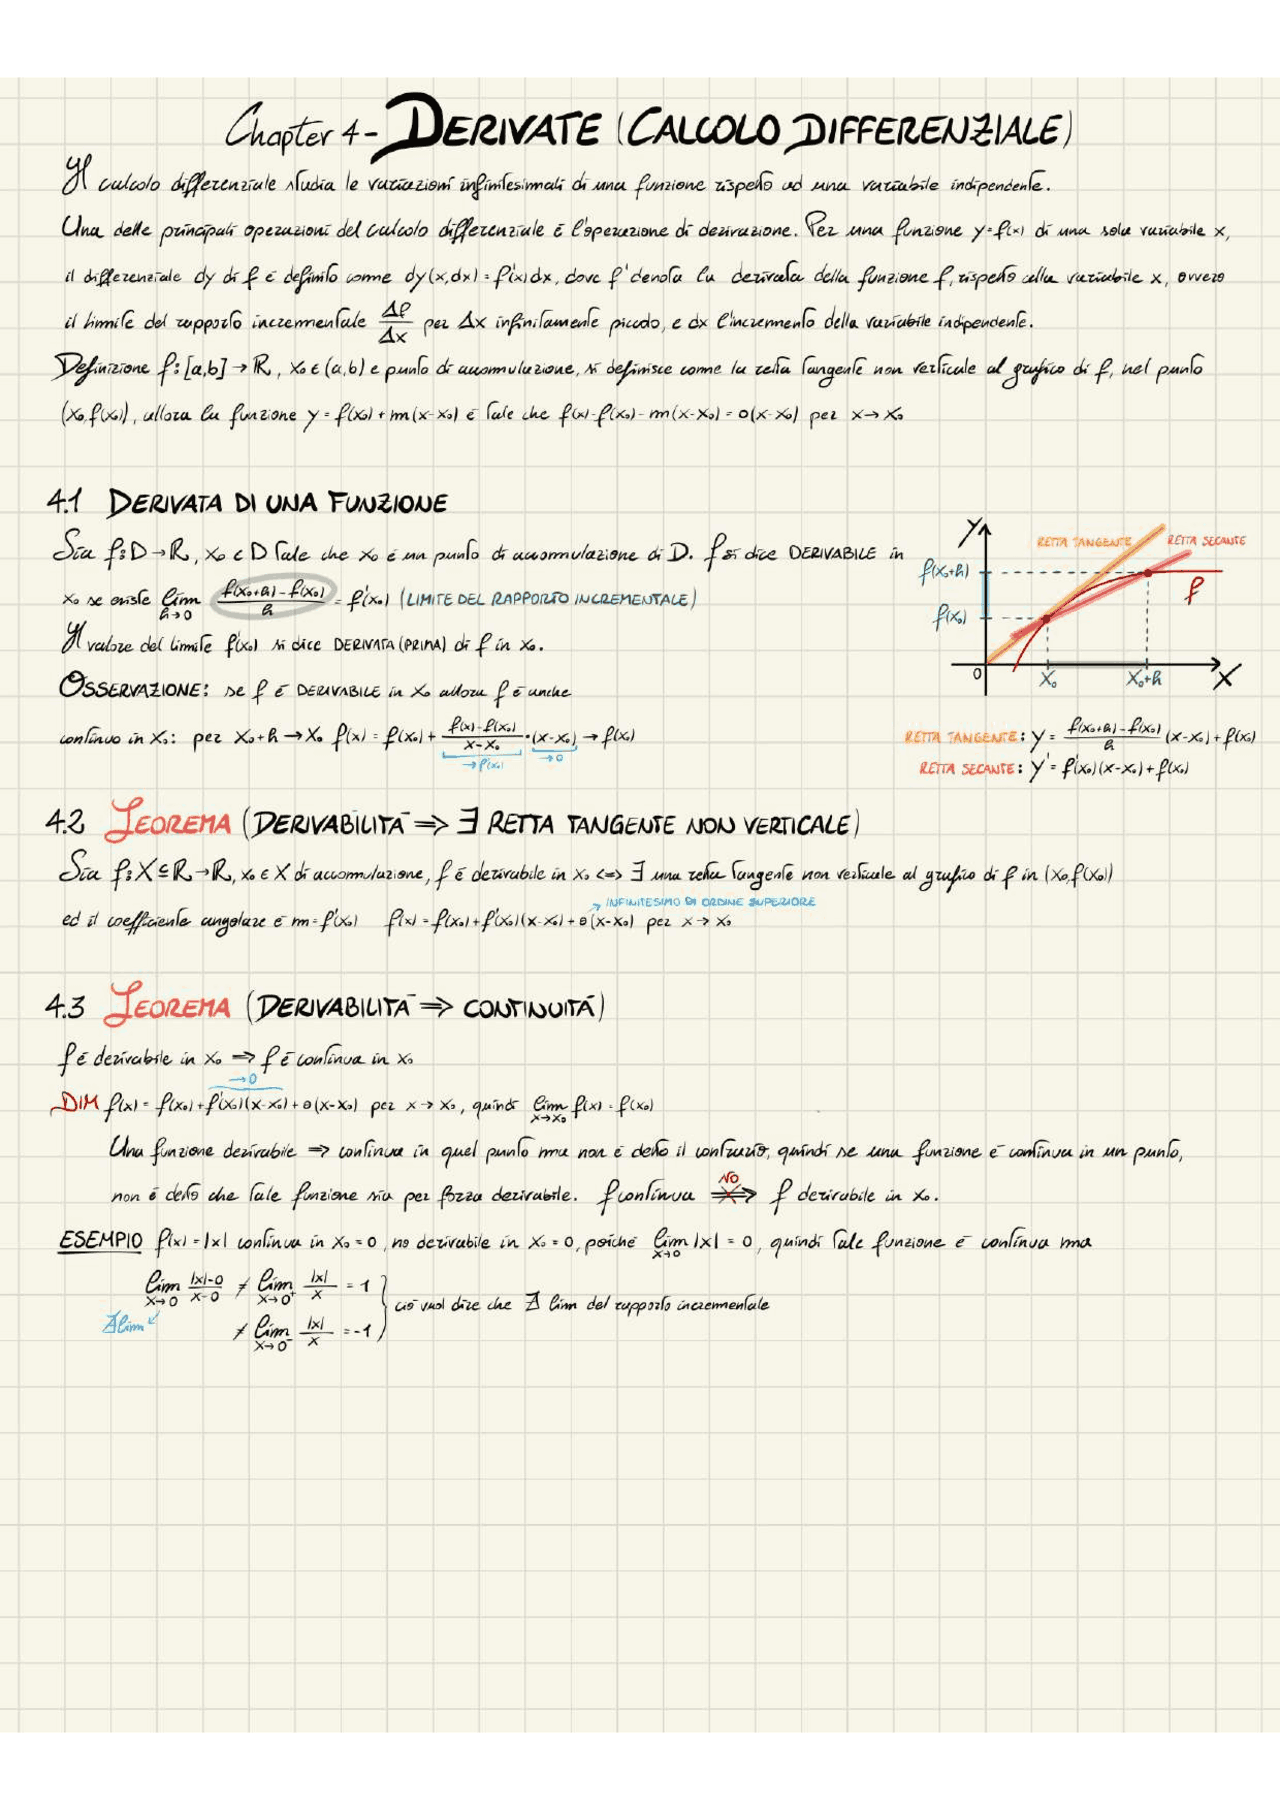 Chapter 4 - DERIVATE (CALCOLO DIFFERENZIALE)
Il calcolo differenziale studia le variazioni infinitesimali di una funzione rispetto ad una variabile indipendente.
Una delle principali operazioni del calcolo differenziale è l'operazione di derivazione. Per una funzione y=f(x) di una sola variabile x,
il differenziale dy di f è definito come dy(x,dx)=f'(x)dx, dove f' denota la derivata della funzione f, rispetto alla variabile x, ovvero
il limite del rapporto incrementale Δf/Δx per Δx infinitamente piccolo, e dx l'incremento della variabile indipendente.
Definizione f:[a,b]→ℝ, x₀∈(a,b) e punto di accumulazione, si definisce come la retta tangente non verticale al grafico di f, nel punto
(x₀,f(x₀)), allora la funzione y=f(x₀)+m(x-x₀) è tale che f(x)-f(x₀)-m(x-x₀)=o(x-x₀) per x→x₀
4.1 DERIVATA DI UNA FUNZIONE
Sia f:D→ℝ, x₀∈D tale che x₀ è un punto di accumulazione di D. f si dice DERIVABILE in
x₀ se esiste lim h→0 (f(x₀+h)-f(x₀))/h = f'(x₀) (LIMITE DEL RAPPORTO INCREMENTALE)
Il valore del limite f'(x₀) si dice DERIVATA (PRIMA) di f in x₀.
OSSERVAZIONE: se f è DERIVABILE in x₀ allora f è anche
continua in x₀: per x₀+h→x₀ f(x)=f(x₀)+(f(x)-f(x₀))/(x-x₀)·(x-x₀)→f(x₀)
→f'(x₀) →0
Y
RETTA TANGENTE
RETTA SECANTE
f(x₀+h)
f
f(x₀)
0 x₀ x₀+h X
RETTA TANGENTE: y=(f(x₀+h)-f(x₀))/h (x-x₀)+f(x₀)
RETTA SECANTE: y'=f'(x₀)(x-x₀)+f(x₀)
4.2 TEOREMA (DERIVABILITÀ ⇒ ∃ RETTA TANGENTE NON VERTICALE)
Sia f:X⊆ℝ→ℝ, x₀∈X di accumulazione, f è derivabile in x₀ <=> ∃ una retta tangente non verticale al grafico di f in (x₀,f(x₀))
→ INFINITESIMO DI ORDINE SUPERIORE
ed il coefficiente angolare è m=f'(x₀) f(x)=f(x₀)+f'(x₀)(x-x₀)+o(x-x₀) per x→x₀
4.3 TEOREMA (DERIVABILITÀ ⇒ CONTINUITÀ)
f è derivabile in x₀ ⇒ f è continua in x₀
→0
DIM f(x)=f(x₀)+f'(x₀)(x-x₀)+o(x-x₀) per x→x₀, quindi lim x→x₀ f(x)=f(x₀)
Una funzione derivabile ⇒ continua in quel punto ma non è detto il contrario, quindi se una funzione è continua in un punto,
NO
non è detto che tale funzione sia per forza derivabile. f continua ⇏ f derivabile in x₀.
ESEMPIO f(x)=|x| continua in x₀=0, no derivabile in x₀=0, poiché lim x→0 |x|=0, quindi tale funzione è continua ma
lim x→0 (|x|-0)/(x-0) ≠ lim x→0⁺ |x|/x = 1
ciò vuol dire che ∄ lim del rapporto incrementale
∄ lim
≠ lim x→0⁻ |x|/x = -1